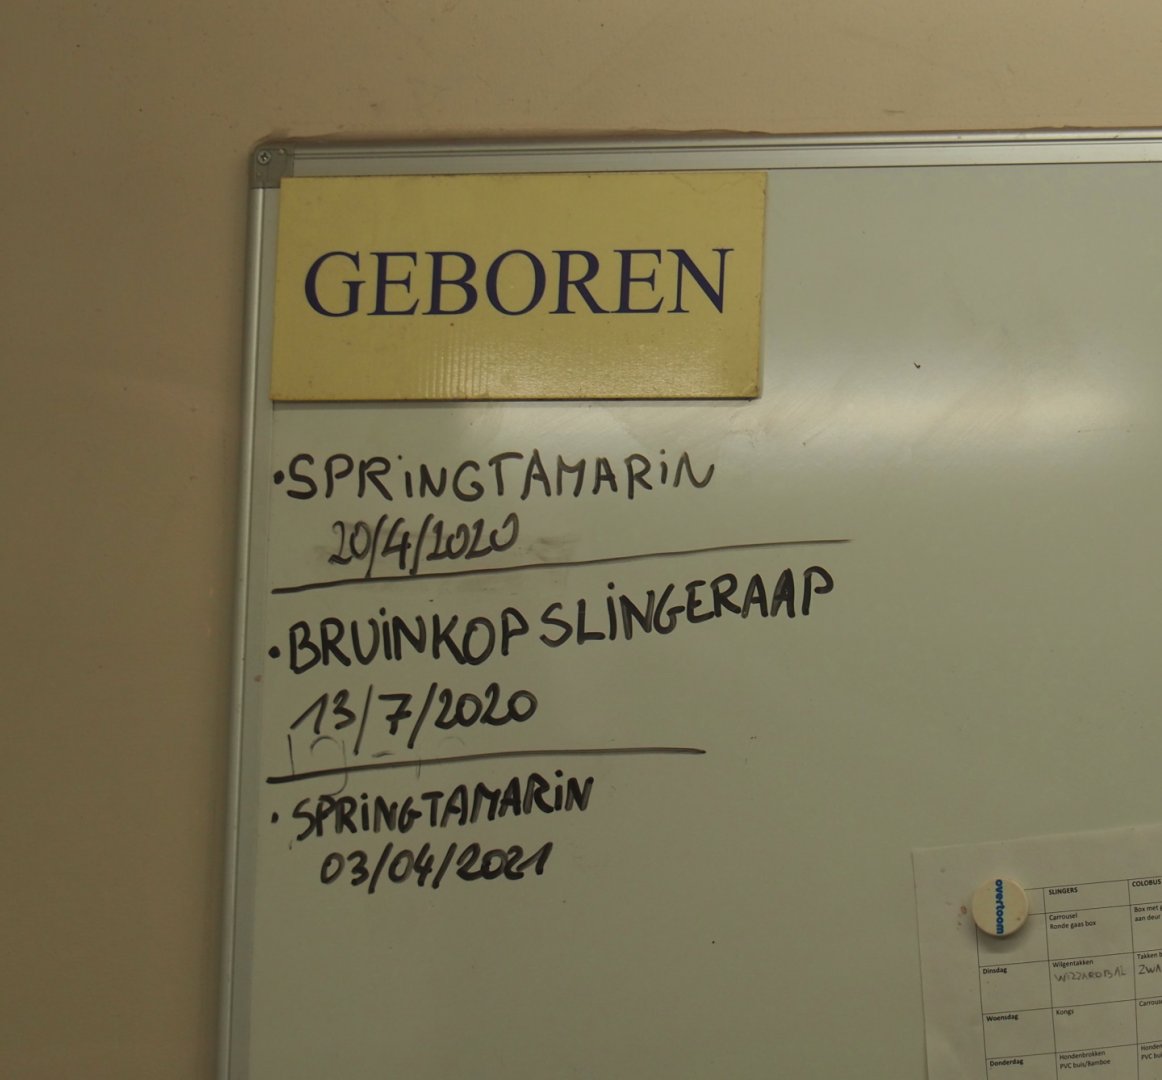 GEBOREN
• SPRiNGTAMARiN
20/4/2020
• BRUiNKOP SLiNGERAAP
13/7/2020
• SPRiNGTAMARiN
03/04/2021
overtoom
SLINGERS
COLOBUS
Carrousel
Ronde gaas box
Box met
aan deur
Dinsdag
Wilgentakken
Takken
Woensdag
Kongs
Donderdag
Hondenbrokken
PVC buis/Bamboe